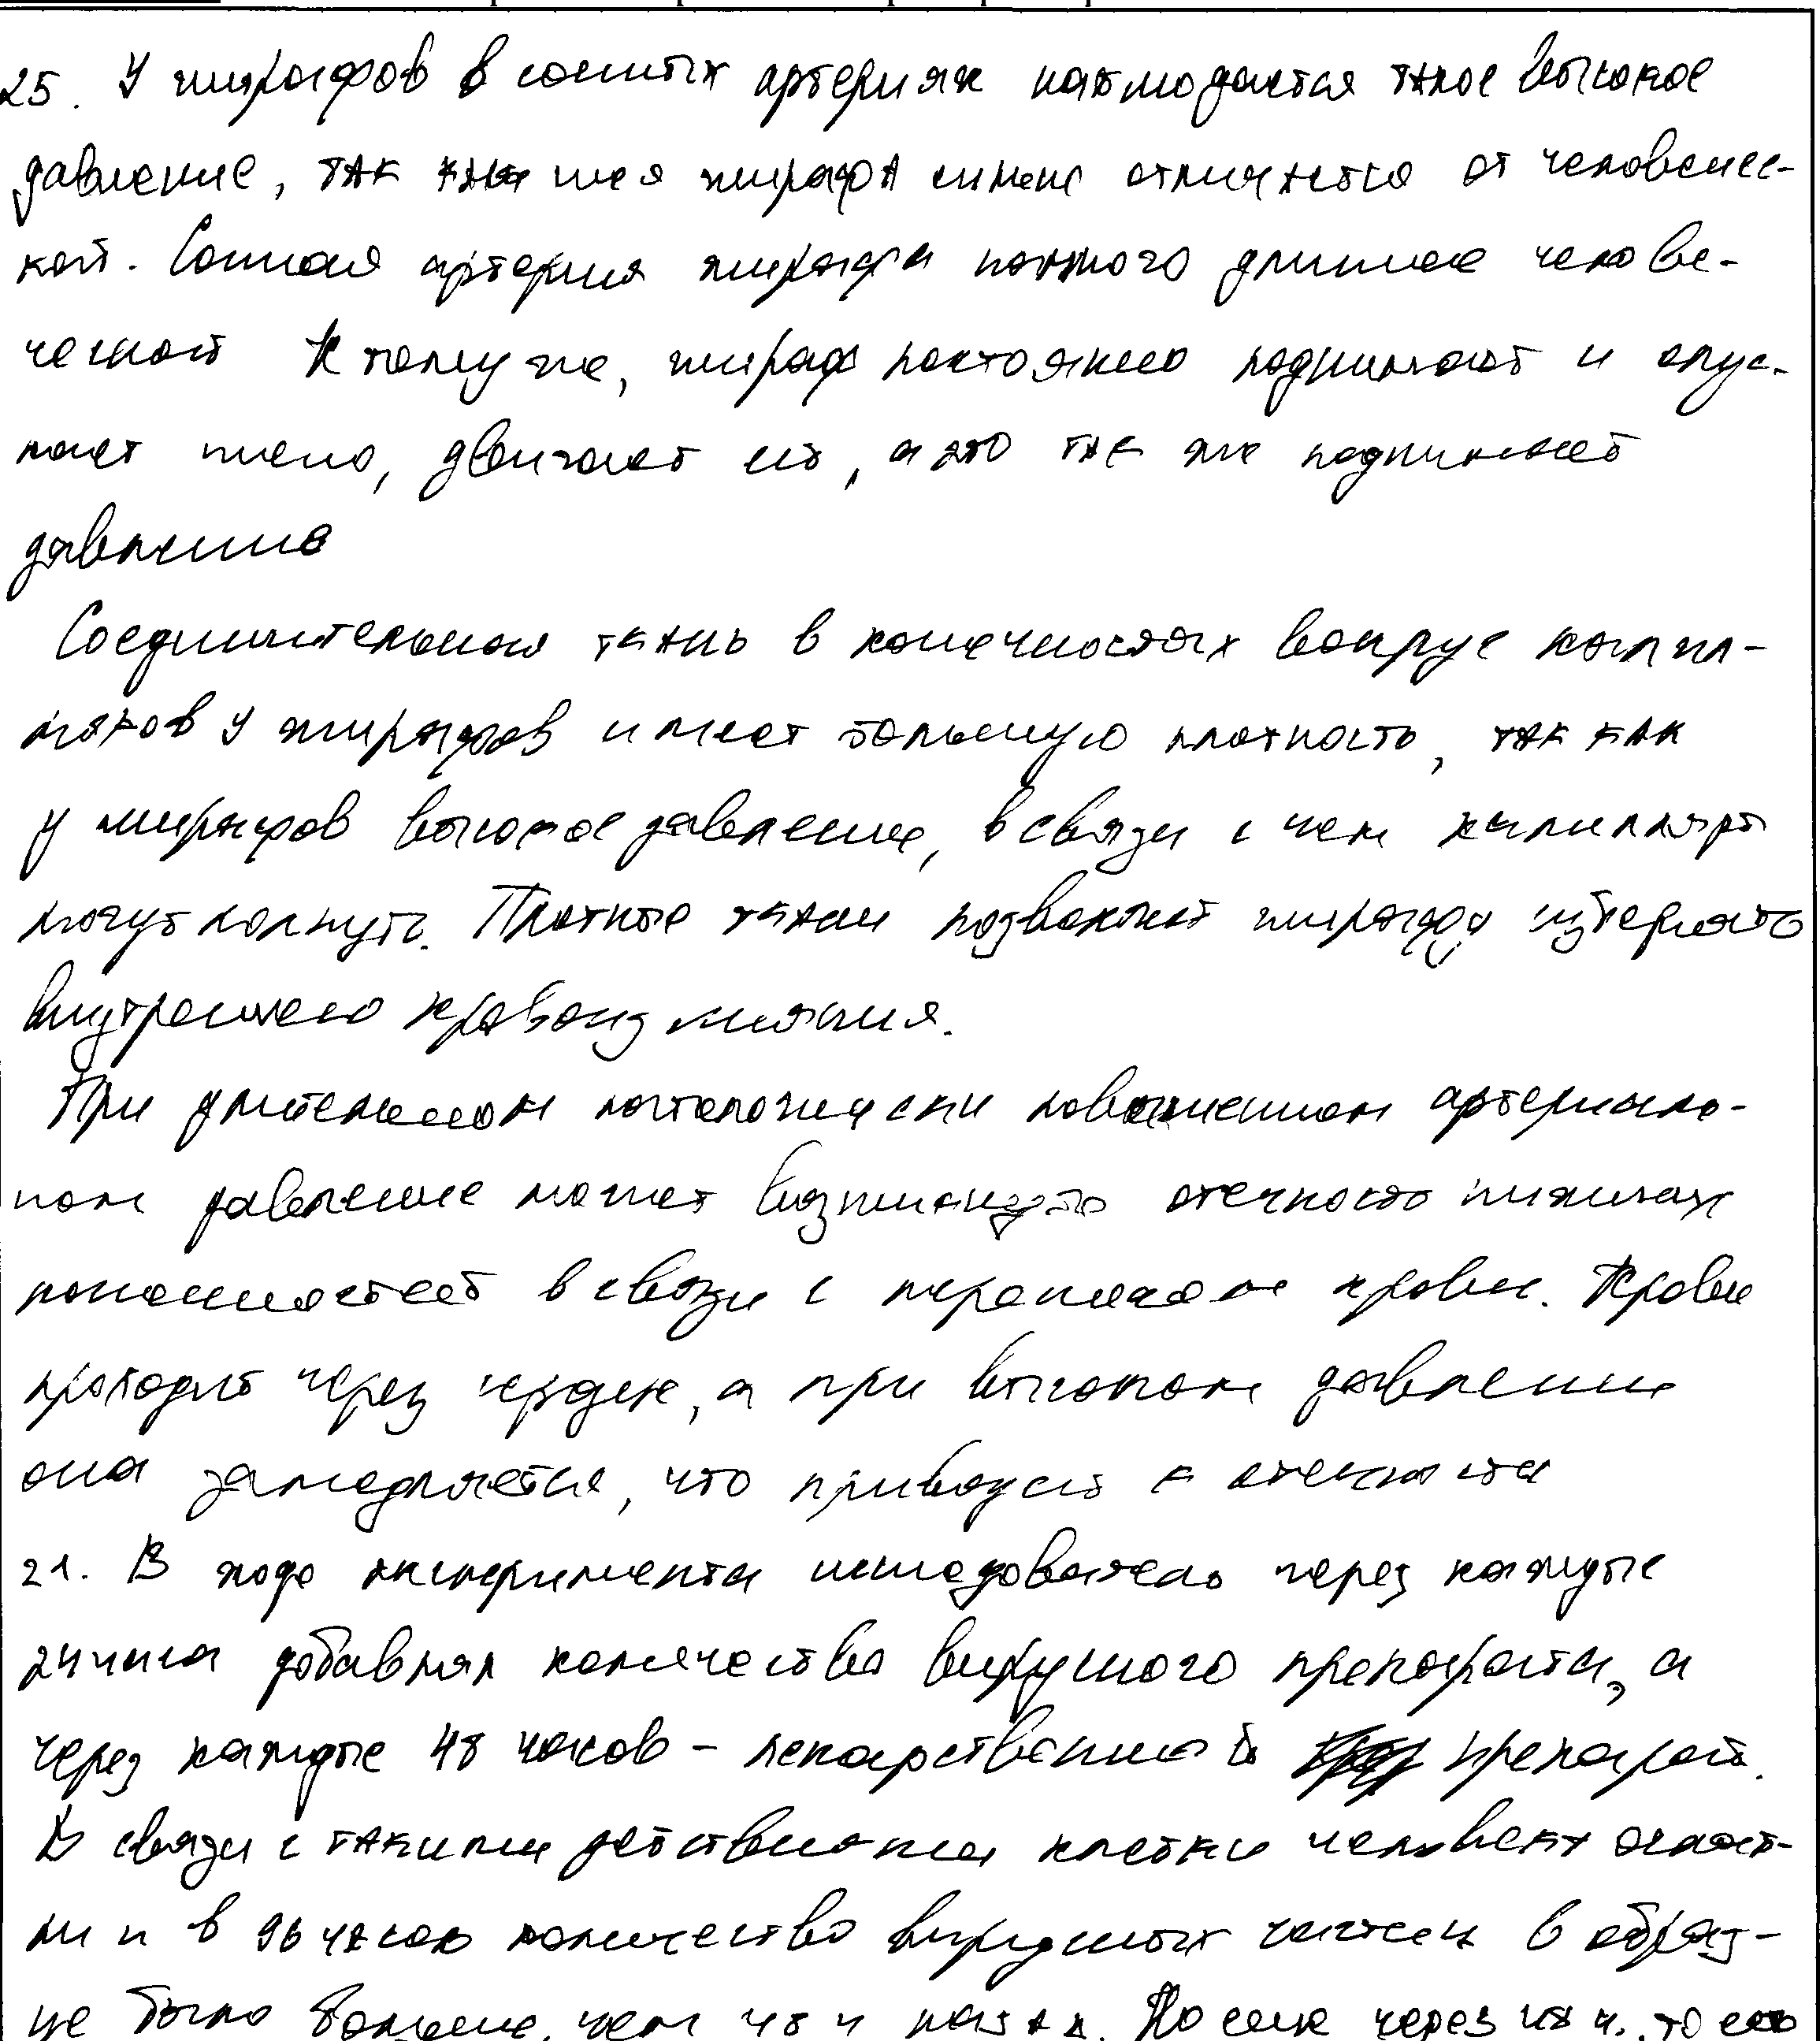 25. У жирафов в сонных артериях наблюдается такое высокое
давление, так как шея жирафа сильно отличается от человечес-
кой. Сонная артерия жирафа намного длиннее челове-
ческой К тому же, жираф постоянно поднимает и опус-
кает шею, двигает ей, а это так же поднимает
давление
Соединительная ткань в конечностях вокруг капил-
ляров у жирафов имеет большую плотность, так как
у жирафов высокое давление, в связи с чем капилляры
могут лопнуть. Плотные ткани позволяют жирафу избежать
внутреннего кровоизлияния.
При длительном патологически повышенном артериаль-
ном давление может возникнуть отечность нижних
конечностей в связи с крови. Кровь
проходит через сердце, а при высоком давлении
она замедляется, что приводит к отечности
21. В ходе эксперимента исследователь через каждые
24 часа добавлял количество вирусного препарата, а
через каждые 48 часов - лекарственный препарат.
В связи с такими действиями клетки человека
и в 96 часов количество вирусных частиц в образ-
це было больше, чем 48 ч назад. Но уже через ч., то есть